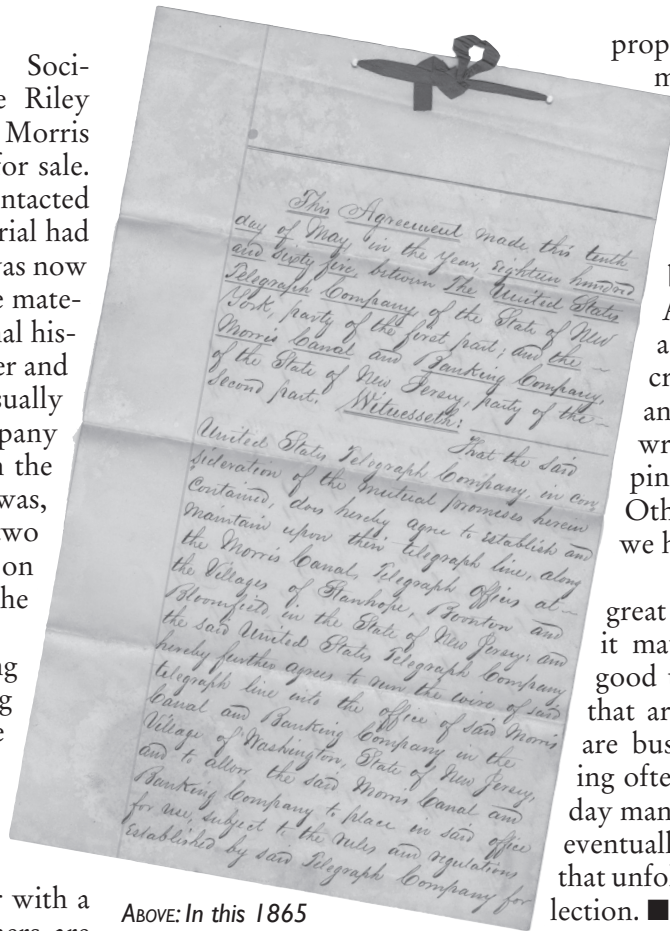 Soci-
e Riley
Morris
for sale.
ntacted
rial had
was now
e mate-
nal his-
er and
sually
pany
n the
was,
two
on
he
ng
g
e
r with a
This Agreement made this tenth
day of May in the year, eighteen hundred
and sixty five, between The United States
Telegraph Company of the State of New
York, party of the first part; and the –
Morris Canal and Banking Company,
of the State of New Jersey, party of the –
second part. Witnesseth:
That the said
United States Telegraph Company, in con
sideration of the mutual promises herein
contained, does hereby agree to establish and
maintain upon their telegraph line, along
the Morris Canal, Telegraph Offices at –
the Villages of Stanhope, Boonton and
Bloomfield, in the State of New Jersey; and
the said United States Telegraph Company
hereby further agrees to run the wire of said
telegraph line into the office of said Morris
Canal and Banking Company in the
Village of Washington, State of New Jersey,
and to allow the said Morris Canal and
Banking Company to place in said office
for use, subject to the rules and regulations
established by said Telegraph Company for
ABOVE: In this 1865
prop
m
A
a
cr
an
wr
pin
Oth
we h
great
it ma
good
that ar
are bus
ing ofte
day man
eventuall
that unfo
lection. ■